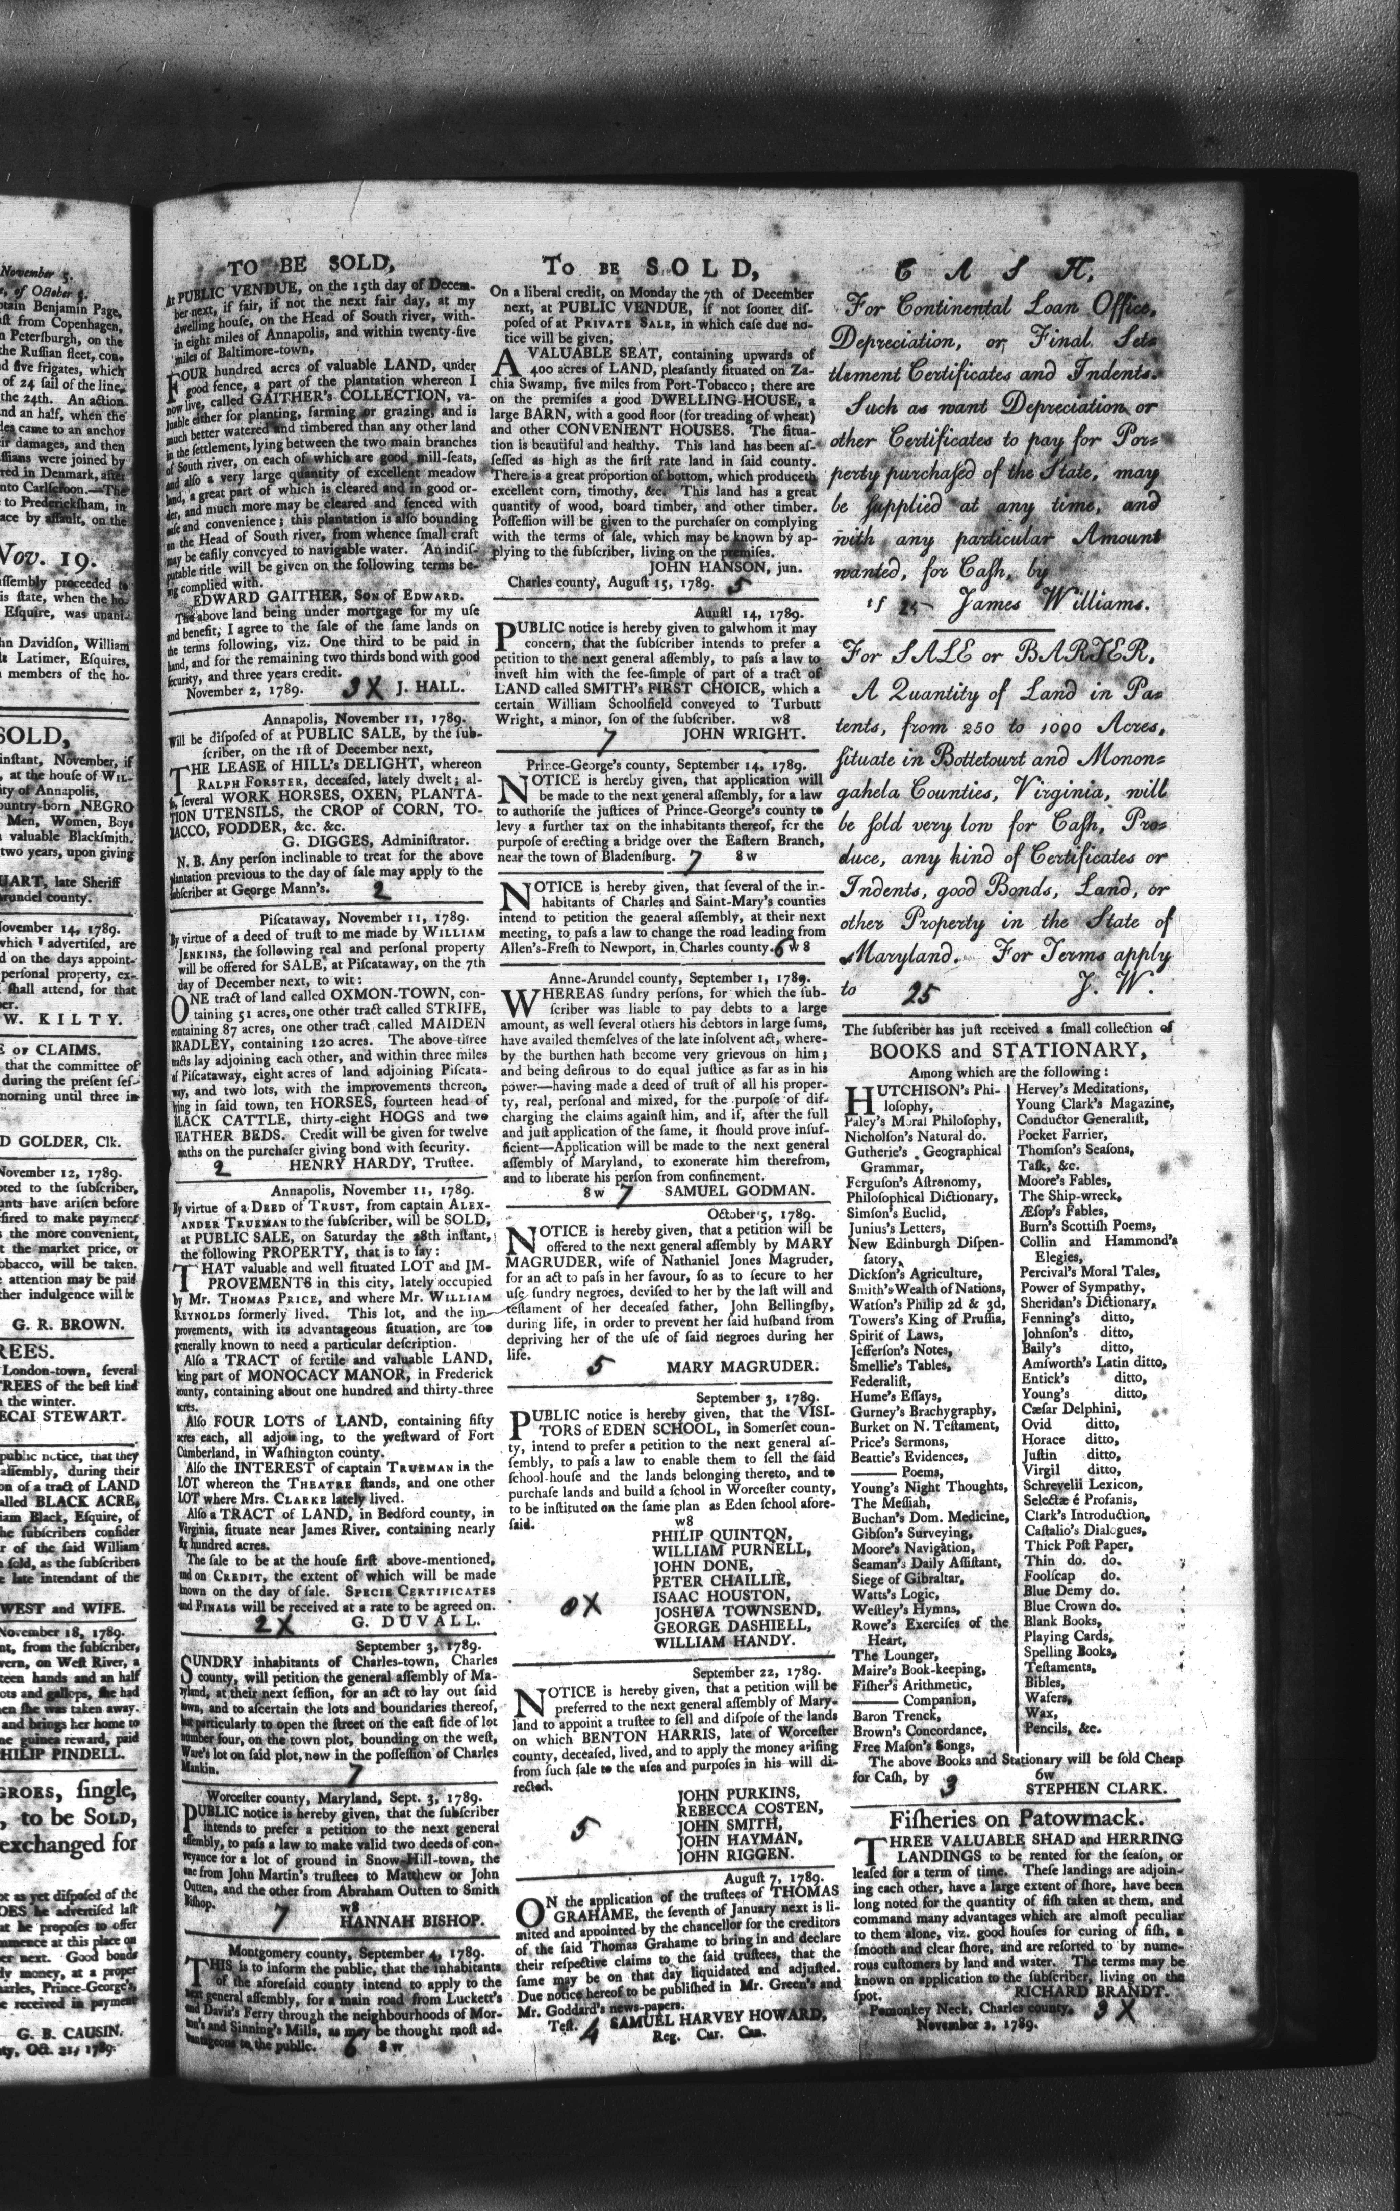 November 5.
of October 5.
Captain Benjamin Page,
from Copenhagen,
Petersburgh, on the
the Russian fleet, con-
five frigates, which
of 24 sail of the line,
the 24th. An action
and an half, when the
came to an anchor
damages, and then
were joined by
in Denmark, after
into Carlscroon.—The
to Fredericksham, in
by assault, on the
Nov. 19.
assembly proceeded to
state, when the ho-
Esquire, was unani-
John Davidson, William
Latimer, Esquires,
members of the ho-
SOLD,
instant, November, if
at the house of WIL-
city of Annapolis,
country-born NEGRO
Men, Women, Boys
valuable Blacksmith.
two years, upon giving
late Sheriff
Arundel county.
November 14, 1789.
which I advertised, are
on the days appoint-
personal property, ex-
shall attend, for that
W. KILTY.
OF CLAIMS.
that the committee of
during the present ses-
morning until three in
GOLDER, Clk.
November 12, 1789.
to the subscriber,
have arisen before
to make payment
the more convenient,
the market price, or
tobacco, will be taken.
attention may be paid
indulgence will be
G. R. BROWN.
London-town, several
TREES of the best kind
the winter.
STEWART.
public notice, that they
assembly, during their
of a tract of LAND
called BLACK ACRE,
William Black, Esquire, of
the subscribers consider
of the said William
sold, as the subscribers
late intendant of the
WEST and WIFE.
November 18, 1789.
from the subscriber,
on West River, a
hands and an half
and gallops, she had
when she was taken away.
and brings her home to
guinea reward, paid
PHILIP PINDELL.
NEGROES, single,
to be SOLD,
exchanged for
as yet disposed of the
he advertised last
he proposes to offer
at this place on
next. Good bonds
money, at a proper
Charles, Prince-George's,
received in payment
G. B. CAUSIN.
Oct. 21, 1789.
TO BE SOLD,
At PUBLIC VENDUE, on the 15th day of Decem-
ber next, if fair, if not the next fair day, at my
dwelling house, on the Head of South river, with-
in eight miles of Annapolis, and within twenty-five
miles of Baltimore-town,
FOUR hundred acres of valuable LAND, under
good fence, a part of the plantation whereon I
now live, called GAITHER's COLLECTION, va-
luable either for planting, farming or grazing, and is
much better watered and timbered than any other land
in the settlement, lying between the two main branches
of South river, on each of which are good mill-seats,
and also a very large quantity of excellent meadow
land, a great part of which is cleared and in good or-
der, and much more may be cleared and fenced with
ease and convenience; this plantation is also bounding
on the Head of South river, from whence small craft
may be easily conveyed to navigable water. An indis-
putable title will be given on the following terms be-
ing complied with.
EDWARD GAITHER, SON OF EDWARD.
The above land being under mortgage for my use
and benefit, I agree to the sale of the same lands on
the terms following, viz. One third to be paid in
hand, and for the remaining two thirds bond with good
security, and three years credit.
November 2, 1789. 3X J. HALL.
Annapolis, November 11, 1789.
Will be disposed of at PUBLIC SALE, by the sub-
scriber, on the 1st of December next,
THE LEASE of HILL's DELIGHT, whereon
RALPH FORSTER, deceased, lately dwelt; al-
so, several WORK HORSES, OXEN, PLANTA-
TION UTENSILS, the CROP of CORN, TO-
BACCO, FODDER, &c. &c.
G. DIGGES, Administrator.
N. B. Any person inclinable to treat for the above
plantation previous to the day of sale may apply to the
subscriber at George Mann's. 2
Piscataway, November 11, 1789.
By virtue of a deed of trust to me made by WILLIAM
JENKINS, the following real and personal property
will be offered for SALE, at Piscataway, on the 7th
day of December next, to wit:
ONE tract of land called OXMON-TOWN, con-
taining 51 acres, one other tract called STRIFE,
containing 87 acres, one other tract called MAIDEN
BRADLEY, containing 120 acres. The above three
tracts lay adjoining each other, and within three miles
of Piscataway, eight acres of land adjoining Piscata-
way, and two lots, with the improvements thereon,
lying in said town, ten HORSES, fourteen head of
BLACK CATTLE, thirty-eight HOGS and two
FEATHER BEDS. Credit will be given for twelve
months on the purchaser giving bond with security.
2 HENRY HARDY, Trustee.
Annapolis, November 11, 1789.
By virtue of a DEED of TRUST, from captain ALEX-
ANDER TRUEMAN to the subscriber, will be SOLD,
at PUBLIC SALE, on Saturday the 28th instant,
the following PROPERTY, that is to say:
THAT valuable and well situated LOT and IM-
PROVEMENTS in this city, lately occupied
by Mr. THOMAS PRICE, and where Mr. WILLIAM
REYNOLDS formerly lived. This lot, and the im-
provements, with its advantageous situation, are too
generally known to need a particular description.
Also a TRACT of fertile and valuable LAND,
being part of MONOCACY MANOR, in Frederick
county, containing about one hundred and thirty-three
acres.
Also FOUR LOTS of LAND, containing fifty
acres each, all adjoining, to the westward of Fort
Cumberland, in Washington county.
Also the INTEREST of captain TRUEMAN in the
LOT whereon the THEATRE stands, and one other
LOT where Mrs. CLARKE lately lived.
Also a TRACT of LAND, in Bedford county, in
Virginia, situate near James River, containing nearly
six hundred acres.
The sale to be at the house first above-mentioned,
and on CREDIT, the extent of which will be made
known on the day of sale. SPECIE CERTIFICATES
and FINALS will be received at a rate to be agreed on.
2X G. DUVALL.
September 3, 1789.
SUNDRY inhabitants of Charles-town, Charles
county, will petition the general assembly of Ma-
ryland, at their next session, for an act to lay out said
town, and to ascertain the lots and boundaries thereof,
but particularly to open the street on the east side of lot
number four, on the town plot, bounding on the west,
Ware's lot on said plot, now in the possession of Charles
Mankin. 7
Worcester county, Maryland, Sept. 3, 1789.
PUBLIC notice is hereby given, that the subscriber
intends to prefer a petition to the next general
assembly, to pass a law to make valid two deeds of con-
veyance for a lot of ground in Snow-Hill-town, the
one from John Martin's trustees to Matthew or John
Outten, and the other from Abraham Outten to Smith
Bishop. w8
7 HANNAH BISHOP.
Montgomery county, September 4, 1789.
THIS is to inform the public, that the inhabitants
of the aforesaid county intend to apply to the
next general assembly, for a main road from Luckett's
and Davis's Ferry through the neighbourhoods of Mor-
ton's and Sinning's Mills, as may be thought most ad-
vantageous to the public. 6 8w
TO BE SOLD,
On a liberal credit, on Monday the 7th of December
next, at PUBLIC VENDUE, if not sooner dis-
posed of at PRIVATE SALE, in which case due no-
tice will be given,
A VALUABLE SEAT, containing upwards of
400 acres of LAND, pleasantly situated on Za-
chia Swamp, five miles from Port-Tobacco; there are
on the premises a good DWELLING-HOUSE, a
large BARN, with a good floor (for treading of wheat)
and other CONVENIENT HOUSES. The situa-
tion is beautiful and healthy. This land has been as-
sessed as high as the first rate land in said county.
There is a great proportion of bottom, which produceth
excellent corn, timothy, &c. This land has a great
quantity of wood, board timber, and other timber.
Possession will be given to the purchaser on complying
with the terms of sale, which may be known by ap-
plying to the subscriber, living on the premises.
JOHN HANSON, jun.
Charles county, August 15, 1789. 5
Austl 14, 1789.
PUBLIC notice is hereby given to galwhom it may
concern, that the subscriber intends to prefer a
petition to the next general assembly, to pass a law to
invest him with the fee-simple of part of a tract of
LAND called SMITH's FIRST CHOICE, which a
certain William Schoolfield conveyed to Turbutt
Wright, a minor, son of the subscriber. w8
7 JOHN WRIGHT.
Prince-George's county, September 14, 1789.
NOTICE is hereby given, that application will
be made to the next general assembly, for a law
to authorise the justices of Prince-George's county to
levy a further tax on the inhabitants thereof, for the
purpose of erecting a bridge over the Eastern Branch,
near the town of Bladensburg. 7 8w
NOTICE is hereby given, that several of the in-
habitants of Charles and Saint-Mary's counties
intend to petition the general assembly, at their next
meeting, to pass a law to change the road leading from
Allen's-Fresh to Newport, in Charles county. 6 w8
Anne-Arundel county, September 1, 1789.
WHEREAS sundry persons, for which the sub-
scriber was liable to pay debts to a large
amount, as well several others his debtors in large sums,
have availed themselves of the late insolvent act, where-
by the burthen hath become very grievous on him;
and being desirous to do equal justice as far as in his
power—having made a deed of trust of all his proper-
ty, real, personal and mixed, for the purpose of dis-
charging the claims against him, and if, after the full
and just application of the same, it should prove insuf-
ficient—Application will be made to the next general
assembly of Maryland, to exonerate him therefrom,
and to liberate his person from confinement.
8w 7 SAMUEL GODMAN.
October 5, 1789.
NOTICE is hereby given, that a petition will be
offered to the next general assembly by MARY
MAGRUDER, wife of Nathaniel Jones Magruder,
for an act to pass in her favour, so as to secure to her
use sundry negroes, devised to her by the last will and
testament of her deceased father, John Bellingsby,
during life, in order to prevent her said husband from
depriving her of the use of said negroes during her
life.
5 MARY MAGRUDER.
September 3, 1789.
PUBLIC notice is hereby given, that the VISI-
TORS of EDEN SCHOOL, in Somerset coun-
ty, intend to prefer a petition to the next general as-
sembly, to pass a law to enable them to sell the said
school-house and the lands belonging thereto, and to
purchase lands and build a school in Worcester county,
to be instituted on the same plan as Eden school afore-
said. w8
PHILIP QUINTON,
WILLIAM PURNELL,
JOHN DONE,
PETER CHAILLIE,
ISAAC HOUSTON,
JOSHUA TOWNSEND,
GEORGE DASHIELL,
WILLIAM HANDY.
September 22, 1789.
NOTICE is hereby given, that a petition will be
preferred to the next general assembly of Mary-
land to appoint a trustee to sell and dispose of the lands
on which BENTON HARRIS, late of Worcester
county, deceased, lived, and to apply the money arising
from such sale to the uses and purposes in his will di-
rected.
JOHN PURKINS,
REBECCA COSTEN,
5 JOHN SMITH,
JOHN HAYMAN,
JOHN RIGGEN.
August 7, 1789.
ON the application of the trustees of THOMAS
GRAHAME, the seventh of January next is li-
mited and appointed by the chancellor for the creditors
of the said Thomas Grahame to bring in and declare
their respective claims to the said trustees, that the
same may be on that day liquidated and adjusted.
Due notice hereof to be published in Mr. Green's and
Mr. Goddard's news-papers.
Test. 4 SAMUEL HARVEY HOWARD,
Reg. Cur. Can.
CASH,
For Continental Loan Office,
Depreciation, or Final Set=
tlement Certificates and Indents.
Such as want Depreciation or
other Certificates to pay for Por=
perty purchased of the State, may
be supplied at any time, and
with any particular Amount
wanted, for Cash, by
tf 25 James Williams.
For SALE or BARTER,
A Quantity of Land in Pa=
tents, from 250 to 1000 Acres,
situate in Bottetourt and Monon=
gahela Counties, Virginia, will
be sold very low for Cash, Pro=
duce, any kind of Certificates or
Indents, good Bonds, Land, or
other Property in the State of
Maryland. For Terms apply
to 25 J. W.
The subscriber has just received a small collection of
BOOKS and STATIONARY,
Among which are the following:
HUTCHISON's Phi-
losophy,
Paley's Moral Philosophy,
Nicholson's Natural do.
Gutherie's Geographical
Grammar,
Ferguson's Astronomy,
Philosophical Dictionary,
Simson's Euclid,
Junius's Letters,
New Edinburgh Dispen-
satory,
Dickson's Agriculture,
Smith's Wealth of Nations,
Watson's Philip 2d & 3d,
Towers's King of Prussia,
Spirit of Laws,
Jefferson's Notes,
Smellie's Tables,
Federalist,
Hume's Essays,
Gurney's Brachygraphy,
Burket on N. Testament,
Price's Sermons,
Beattie's Evidences,
—— Poems,
Young's Night Thoughts,
The Messiah,
Buchan's Dom. Medicine,
Gibson's Surveying,
Moore's Navigation,
Seaman's Daily Assistant,
Siege of Gibraltar,
Watts's Logic,
Westley's Hymns,
Rowe's Exercises of the
Heart,
The Lounger,
Maire's Book-keeping,
Fisher's Arithmetic,
—— Companion,
Baron Trenck,
Brown's Concordance,
Free Mason's Songs,
Hervey's Meditations,
Young Clark's Magazine,
Conductor Generalist,
Pocket Farrier,
Thomson's Seasons,
Task, &c.
Moore's Fables,
The Ship-wreck,
Æsop's Fables,
Burn's Scottish Poems,
Collin and Hammond's
Elegies,
Percival's Moral Tales,
Power of Sympathy,
Sheridan's Dictionary,
Fenning's ditto,
Johnson's ditto,
Baily's ditto,
Amsworth's Latin ditto,
Entick's ditto,
Young's ditto,
Cæsar Delphini,
Ovid ditto,
Horace ditto,
Justin ditto,
Virgil ditto,
Schrevelii Lexicon,
Selectæ é Profanis,
Clark's Introduction,
Castalio's Dialogues,
Thick Post Paper,
Thin do. do.
Foolscap do.
Blue Demy do.
Blue Crown do.
Blank Books,
Playing Cards,
Spelling Books,
Testaments,
Bibles,
Wafers,
Wax,
Pencils, &c.
The above Books and Stationary will be sold Cheap
for Cash, by 3 6w
STEPHEN CLARK.
Fisheries on Patowmack.
THREE VALUABLE SHAD and HERRING
LANDINGS to be rented for the season, or
leased for a term of time. These landings are adjoin-
ing each other, have a large extent of shore, have been
long noted for the quantity of fish taken at them, and
command many advantages which are almost peculiar
to them alone, viz. good houses for curing of fish, a
smooth and clear shore, and are resorted to by nume-
rous customers by land and water. The terms may be
known on application to the subscriber, living on the
spot. RICHARD BRANDT.
Pomonkey Neck, Charles county, 3X
November 2, 1789.